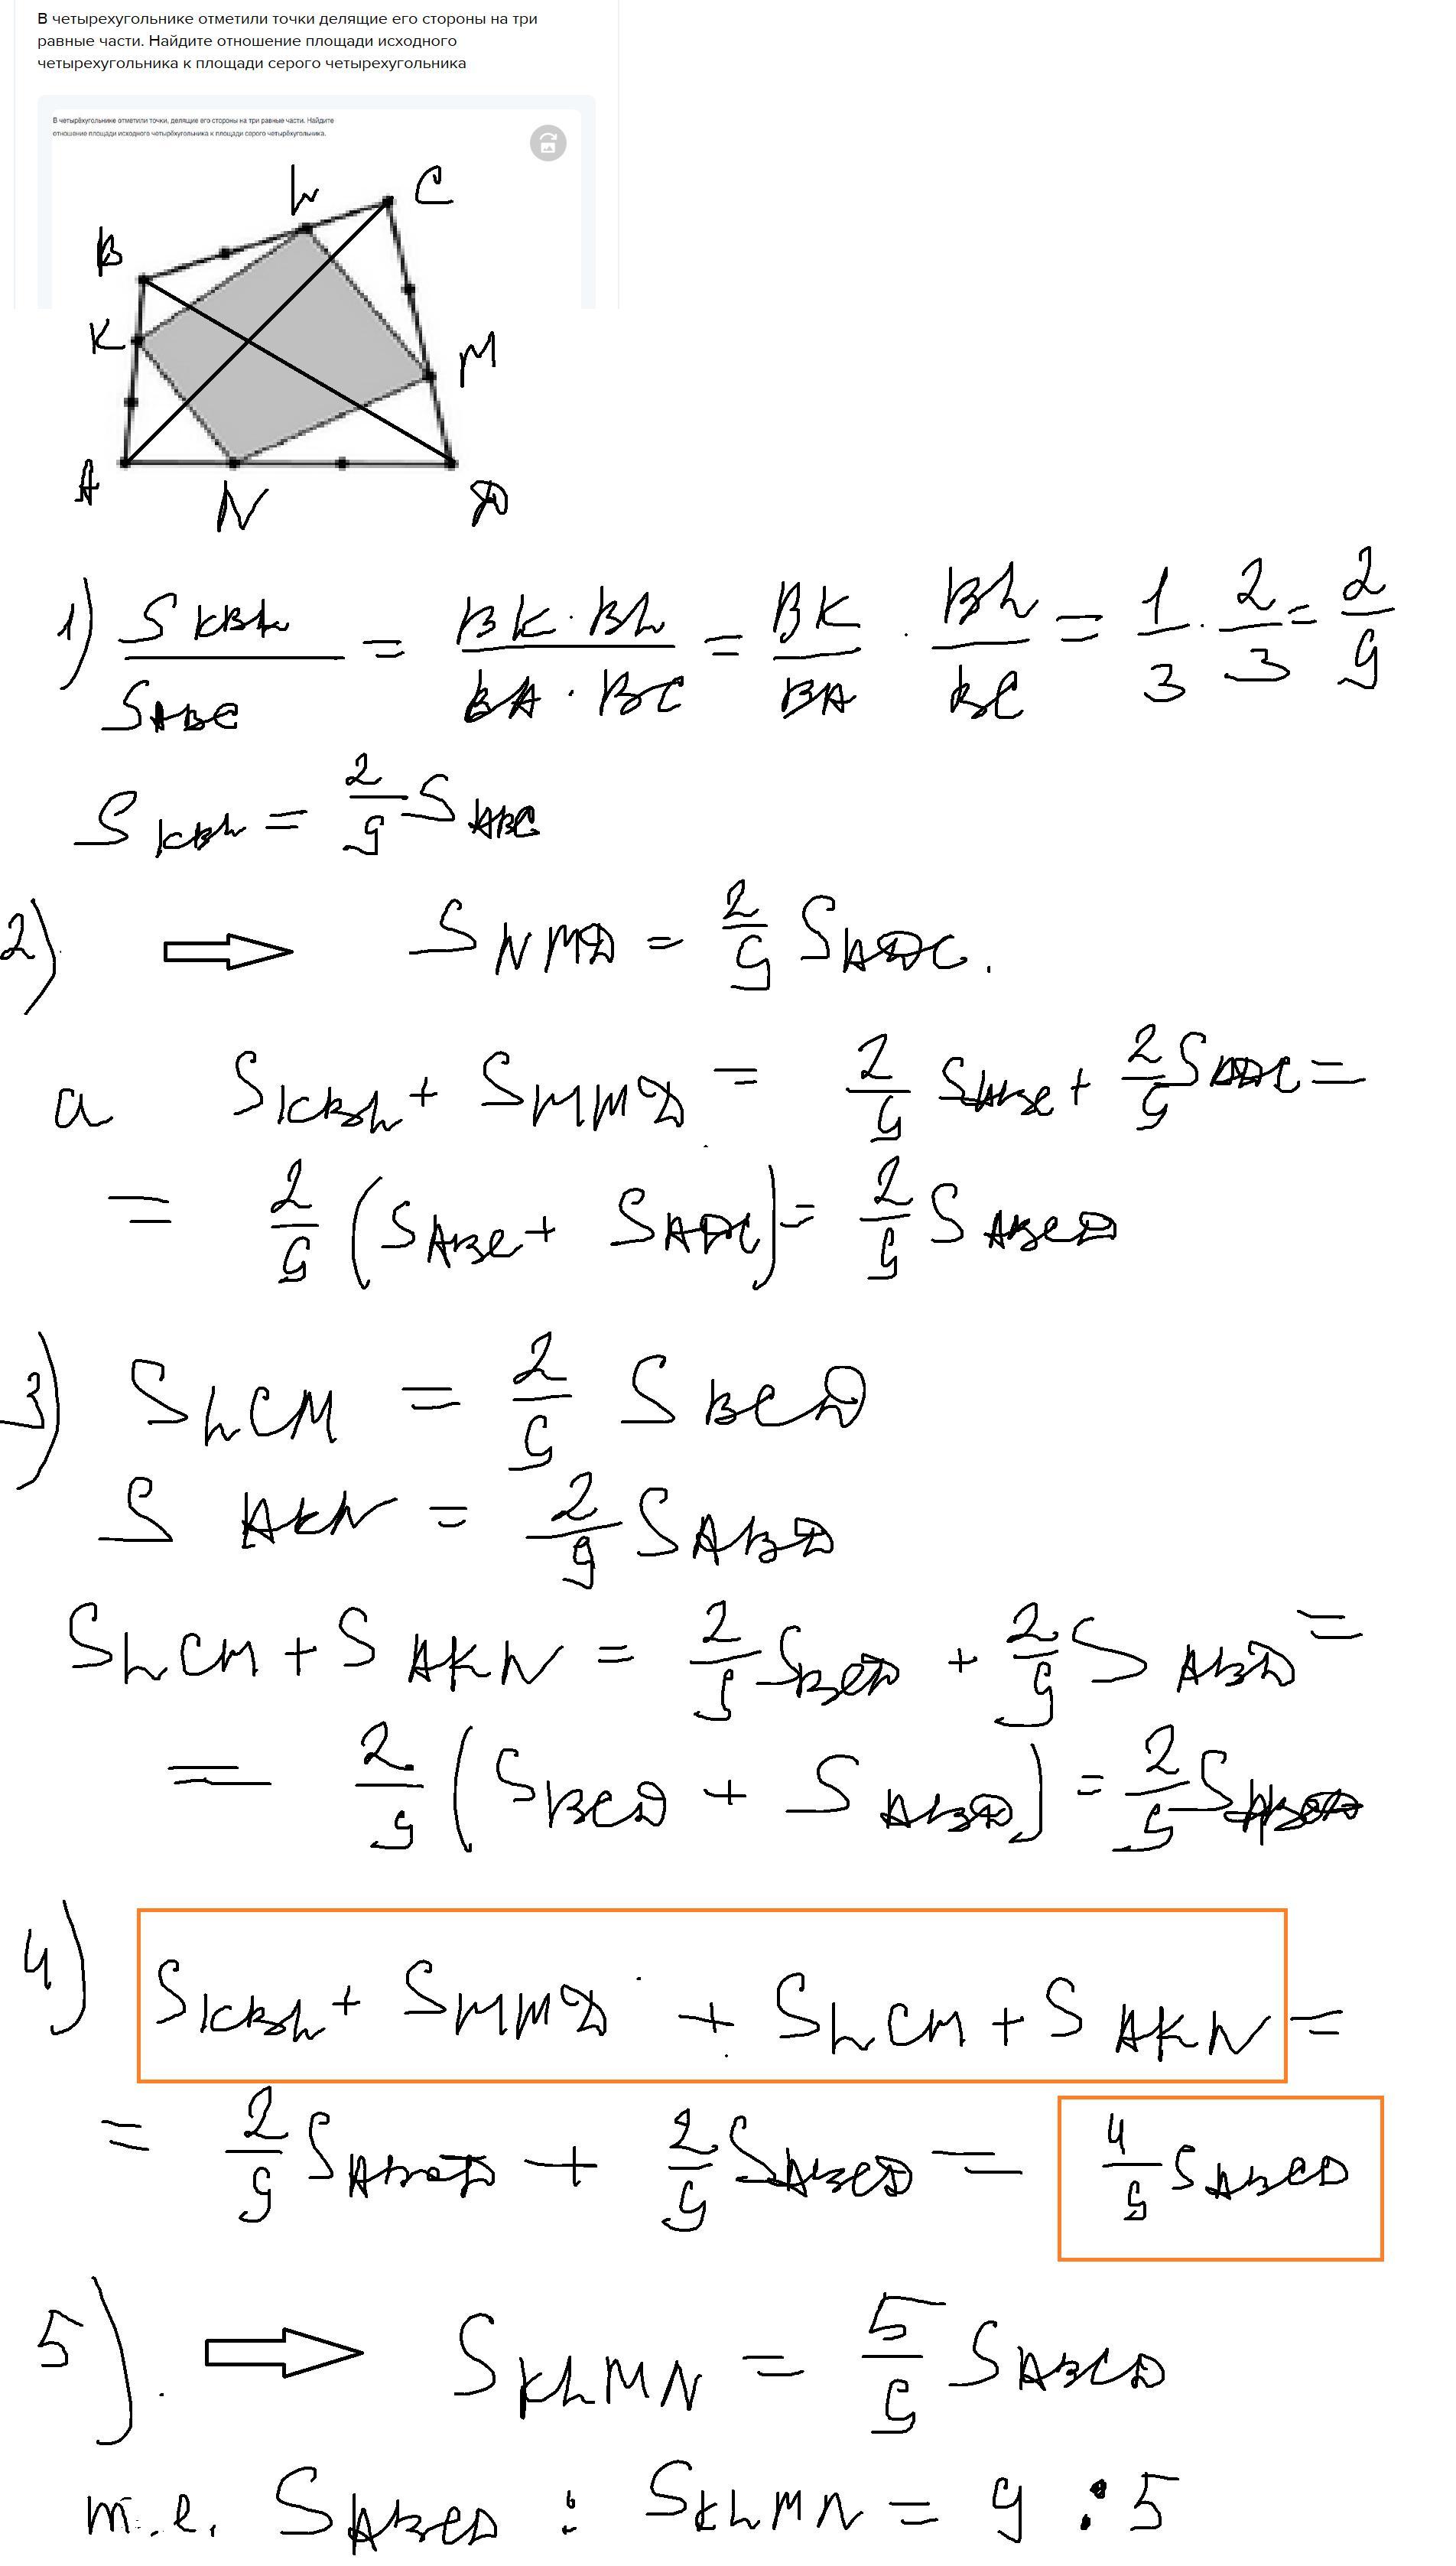 В четырехугольнике отметили точки делящие его стороны на три
равные части. Найдите отношение площади исходного
четырехугольника к площади серого четырехугольника
В четырёхугольнике отметили точки, делящие его стороны на три равные части. Найдите
отношение площади исходного четырёхугольника к площади серого четырёхугольника.
L C
B
K M
A N D
1) S KBL / S ABC = BK · BL / BA · BC = BK / BA · BL / BC = 1/3 · 2/3 = 2/9
S KBL = 2/9 S ABC
2) ⇒ S NMD = 2/9 S ADC.
а S KBL + S NMD = 2/9 S ABC + 2/9 S ADC =
= 2/9 (S ABC + S ADC) = 2/9 S ABCD
3) S LCM = 2/9 S BCD
S AKN = 2/9 S ABD
S LCM + S AKN = 2/9 S BCD + 2/9 S ABD =
= 2/9 (S BCD + S ABD) = 2/9 S ABCD
4) S KBL + S NMD + S LCM + S AKN =
= 2/9 S ABCD + 2/9 S ABCD = 4/9 S ABCD
5). ⇒ S KLMN = 5/9 S ABCD
т.е. S ABCD : S KLMN = 9 : 5